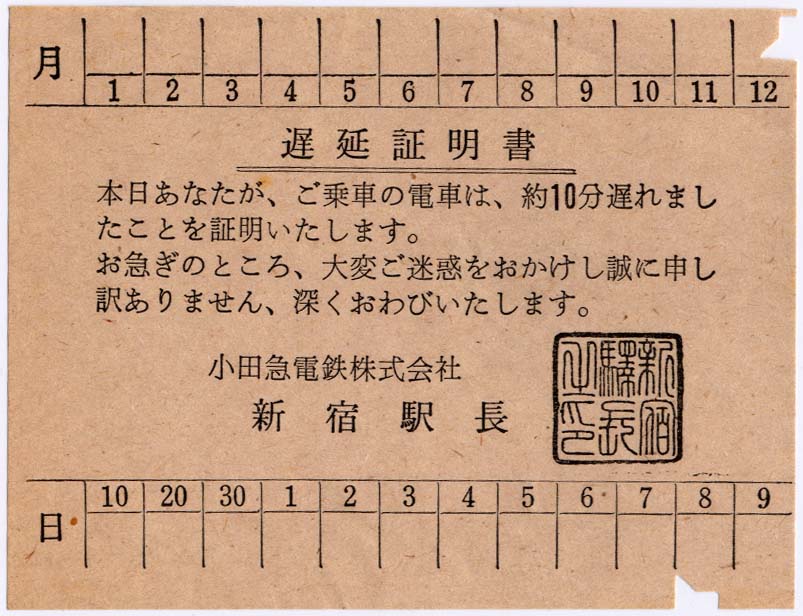 月 1 2 3 4 5 6 7 8 9 10 11 12
遅延証明書
本日あなたが、ご乗車の電車は、約10分遅れまし
たことを証明いたします。
お急ぎのところ、大変ご迷惑をおかけし誠に申し
訳ありません、深くおわびいたします。
小田急電鉄株式会社
新宿駅長
新宿
驛長
之印
日 10 20 30 1 2 3 4 5 6 7 8 9